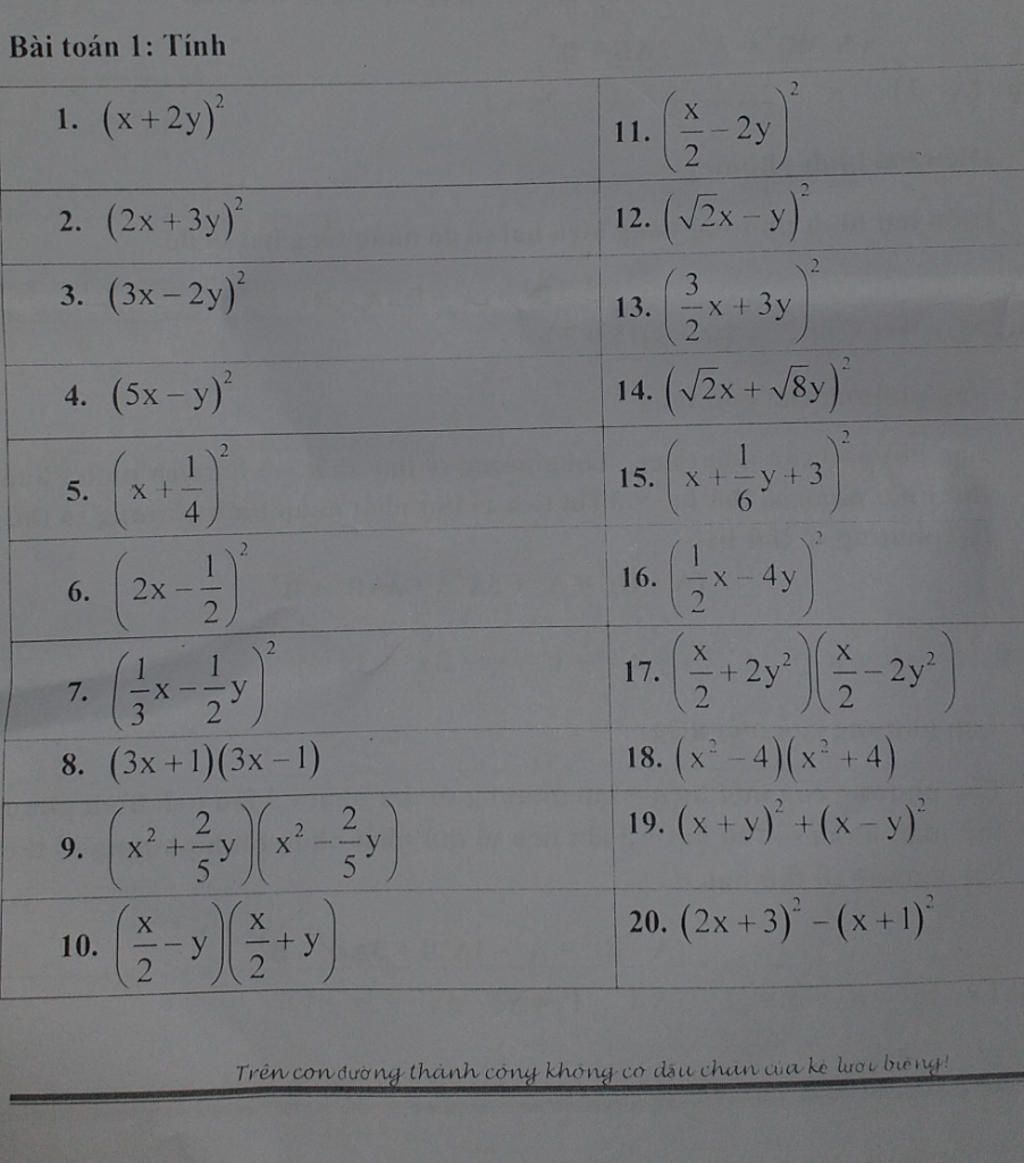 Bài toán 1: Tính
1. (x + 2y)²
11. (x/2 − 2y)²
2. (2x + 3y)²
12. (√2x − y)²
3. (3x − 2y)²
13. (3/2 x + 3y)²
4. (5x − y)²
14. (√2x + √8y)²
5. (x + 1/4)²
15. (x + 1/6 y + 3)²
6. (2x − 1/2)²
16. (1/2 x − 4y)²
7. (1/3 x − 1/2 y)²
17. (x/2 + 2y²)(x/2 − 2y²)
8. (3x + 1)(3x − 1)
18. (x² − 4)(x² + 4)
9. (x² + 2/5 y)(x² − 2/5 y)
19. (x + y)² + (x − y)²
10. (x/2 − y)(x/2 + y)
20. (2x + 3)² − (x + 1)²
Trên con đường thành công không có dấu chân của kẻ lười biếng!